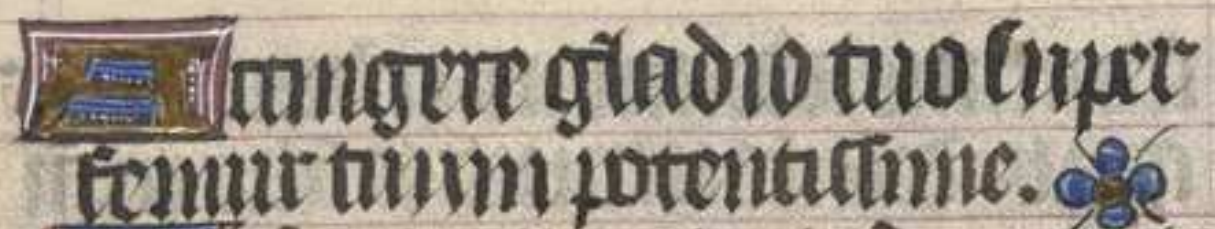 Accingere gladio tuo super
femur tuum potentissime.